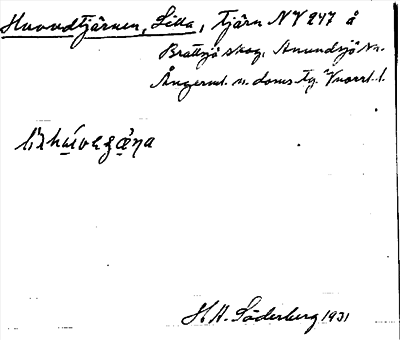 Huvudtjärnen, Lilla, tjärn NV 247 å
Brattsjö skog, Anundsjö sn.
Ångerml. n. doms tg. Vnorrl. l.
H. H. Söderberg 1931